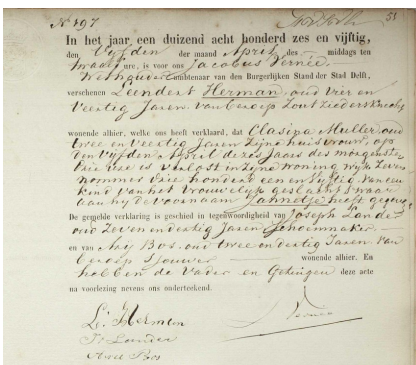 No 197 51
In het jaar een duizend acht honderd zes en vijftig,
den Vijfden der maand April des middags ten
twaalf ure, is voor ons Jacobus Vernée
Wethouder Ambtenaar van den Burgerlijken Stand der Stad Delft,
verschenen Leendert Herman, oud vier en
veertig Jaren, van beroep Zoutziedersknecht
wonende alhier, welke ons heeft verklaard, dat Clasina Muller, oud
twee en veertig Jaren zijne huisvrouw, op
den vijfden April dezes Jaars des morgens te
drie ure is verlost in zijne woning wijk Zeven
nommer drie honderd een en vijftig van een
kind van het vrouwelijk geslacht, waar
aan hij de voornaam Jannetje heeft gegeven
De gemelde verklaring is geschied in tegenwoordigheid van Joseph Lander
oud Zeven en dertig Jaren Schoenmaker
en van Arij Bos, oud twee en dertig Jaren van
beroep Sjouwer wonende alhier. En
hebben de Vader en Getuigen deze acte
na voorlezing nevens ons onderteekend.
L. Herman
Vernée
J. Lander
Arie Bos